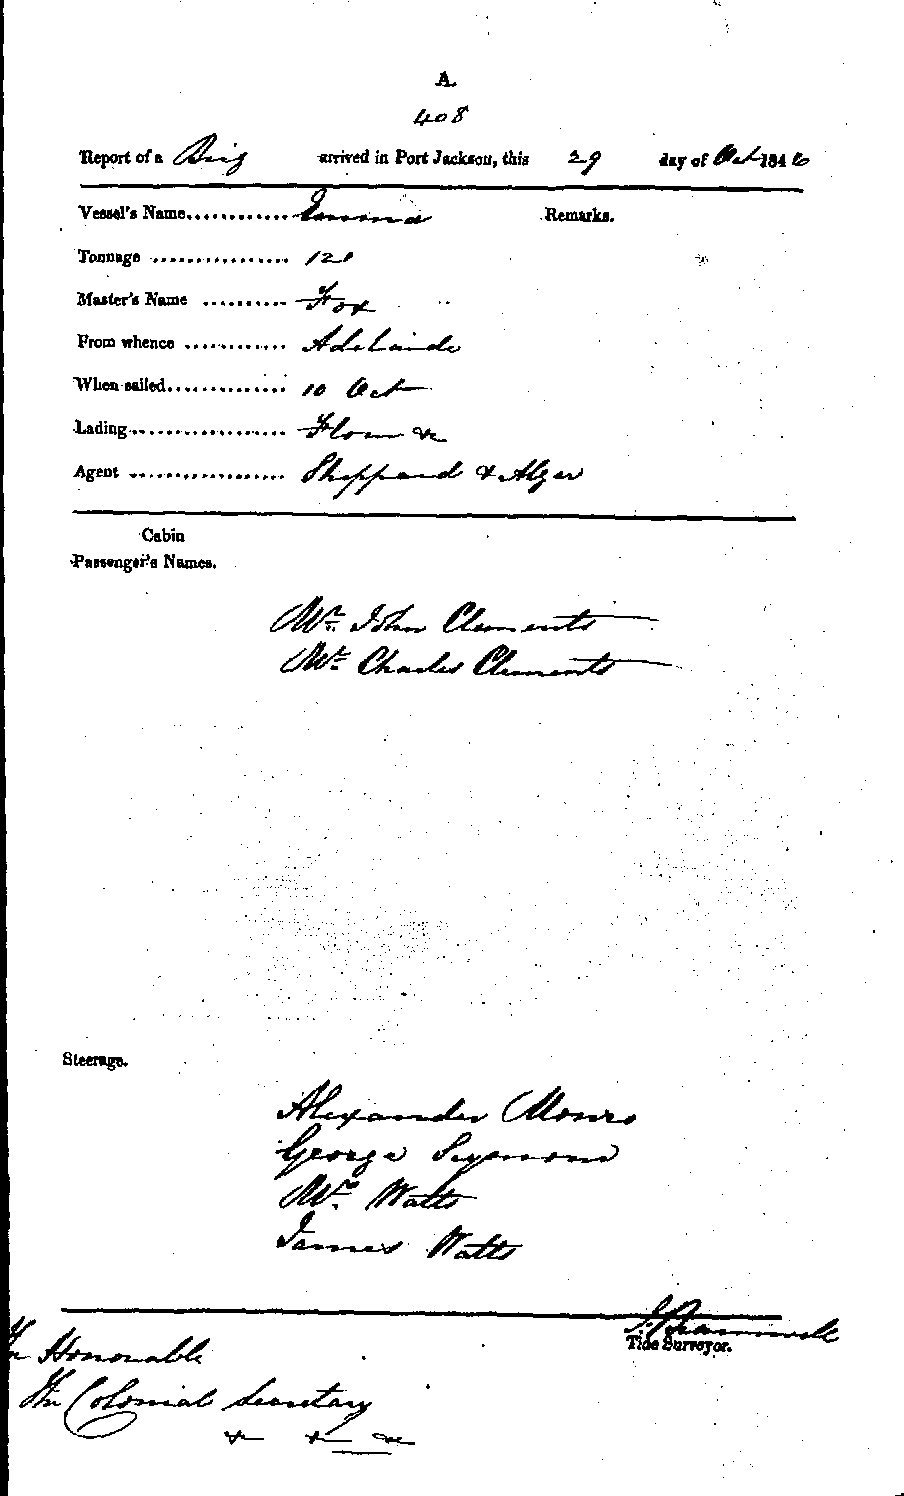 A.
408
Report of a Brig arrived in Port Jackson, this 29 day of Oct 1846
Vessel's Name............. Emma Remarks.
Tonnage ................ 121
Master's Name .......... Fox
From whence ............ Adelaide
When sailed.............. 10 Oct
Lading.................. Flour &c
Agent .................. Sheppard & Alger
Cabin
Passenger's Names.
Mr. John Clements
Mr. Charles Clements
Steerage.
Alexander Monro
George Symons
Mr. Watts
James Watts
Tide Surveyor.
The Honorable
The Colonial Secretary
&c &c &c